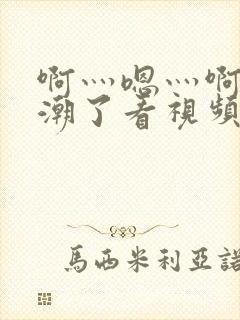 啊灬嗯灬啊
潮了看視頻
馬西米利亞諾